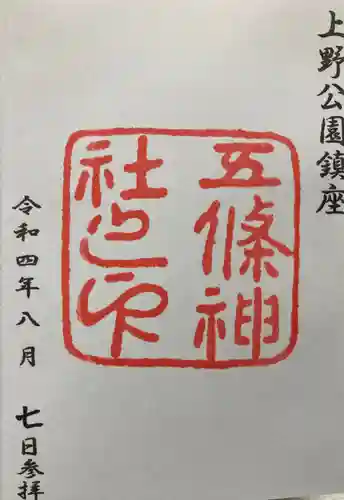 上野公園鎮座
五條神
社之印
令和四年八月 七日参拝